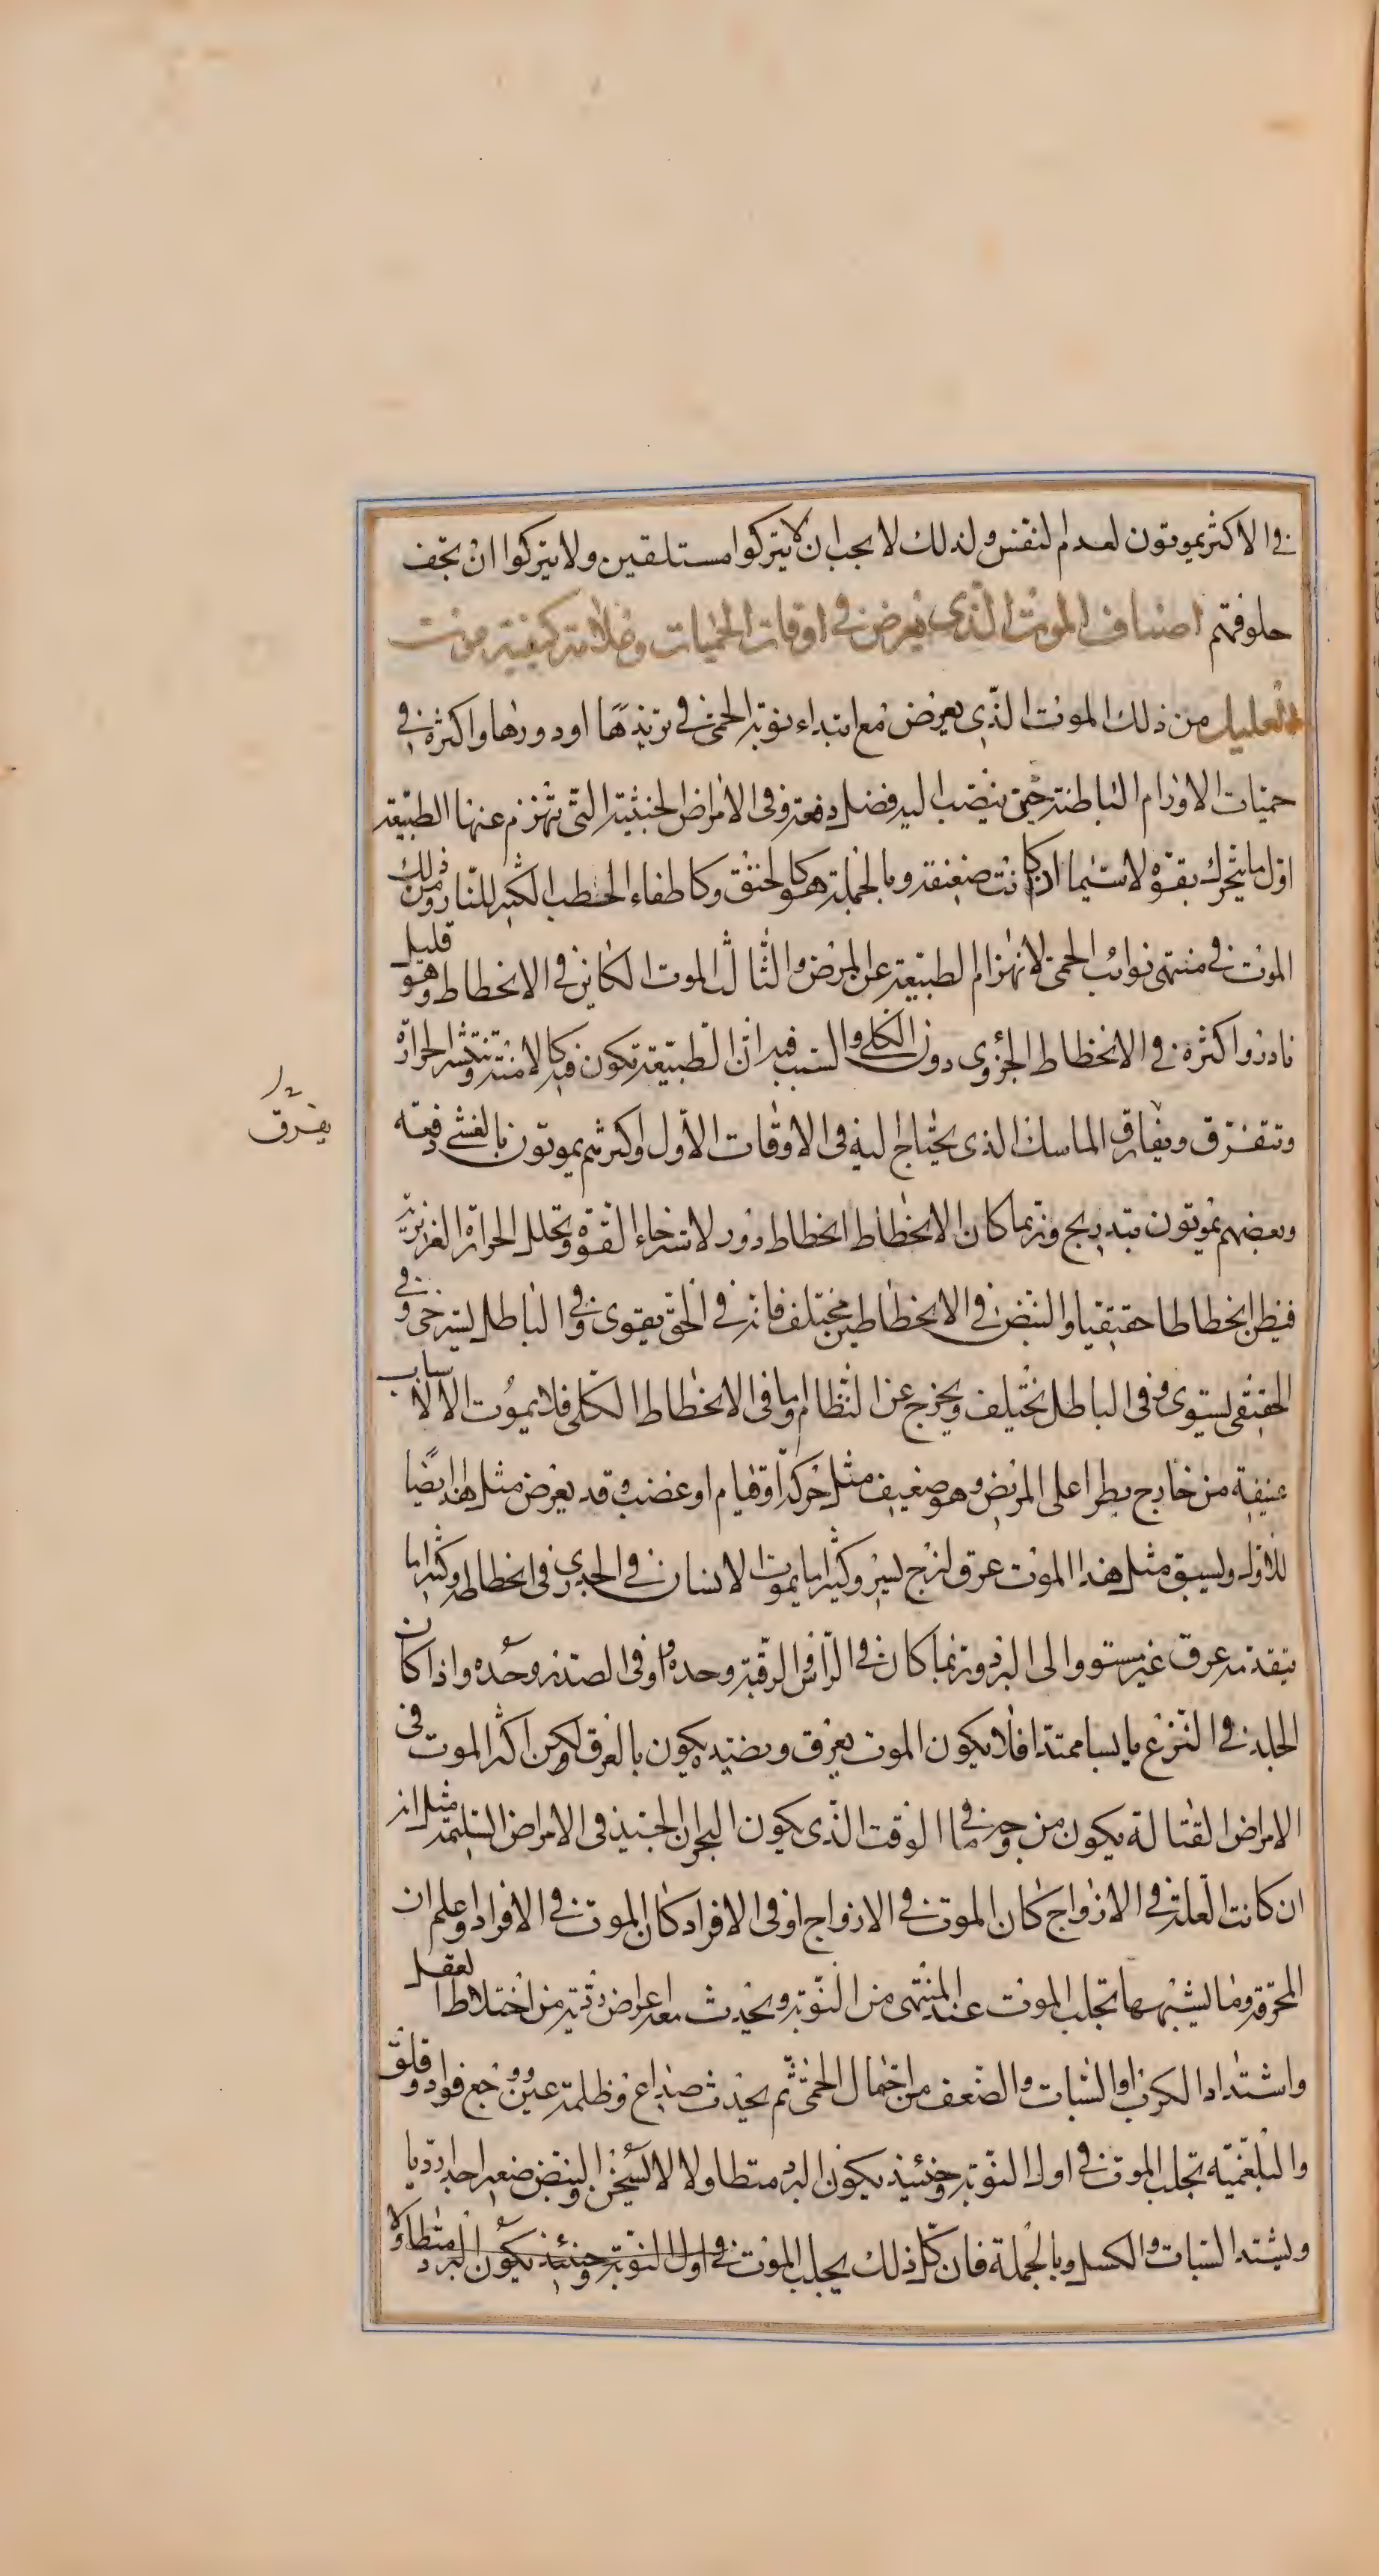 في الاكثر يموتون لعدم التنفس ولذلك لا يجب ان لا يتركوا مستلقين ولا يتركوا ان تجف
حلوقهم اصناف الموت الذى يعرض في اوقات الحميات وعلامة كيفية موت
العليل من ذلك الموت الذي يعرض مع ابتداء نوبة الحمى في تزيدها او دورها واكثره في
حميات الاورام الباطنة حتى ينصب اليه فضل دفعة وفي الامراض الخبيثة التى تنهزم عنها الطبيعة
اول ما يتحرك بقوة لا سيما ان كانت ضعيفة وبالجملة هو كالخنق وكاطفاء الحطب الكثير للنار ومن ذلك
الموت في منتهى نوائب الحمى لانهزام الطبيعة عن المرض والثالث الموت الكاين في الانحطاط وهو قليل
نادر واكثره في الانحطاط الجزوى دون الكلى والسبب فيه ان الطبيعة تكون فيه كالامنة وتنتشر الحرارة
وتتفرق ويفارق الماسك الذى يحتاج اليه في الاوقات الاول اكثرهم يموتون بالغشى دفعة
يفرق
وبعضهم يموتون بتدريج وربما كان الانحطاط انحطاط زور لاسترخاء القوة وتحلل الحرارة الغزيرية
فيظن انحطاطا حقيقيا والنبض في الانحطاطين مختلف فانه في الحق يقوى وفي الباطل يسترخى وفي
الحقيقى يستوى وفي الباطل يختلف ويخرج عن النظام واما في الانحطاط الكلى فلا يموت الا لاسباب
عنيفة من خارج يطرا على المريض وهو ضعيف مثل حركة او قيام او غضب وقد يعرض مثل هذا ايضا
للاول ويسبق مثل هذا الموت عرق لزج يسير وكثيرا ما يموت الانسان في الجدرى في انحطاطه وكثيرا ما
يتقدمه عرق غير مستو والى البرد وربما كان في الراس والرقبة وحده او في الصدر وحده واذا كان
الجلد في النزع يابسا ممتدا فلا يكون الموت بعرق وبضده يكون بالعرق ولكن اكثر الموت في
الامراض القتالة يكون من وجه ما في الوقت الذى يكون البحران الجيد في الامراض السليمة مثل انه
ان كانت العلة في الازواج كان الموت في الازواج او في الافراد كان الموت في الافراد واعلم ان
المحرقة وما يشبهها تجلب الموت عند المنتهى من النوبة ويحدث معه اعراض ردية من اختلاط العقل
واشتداد الكرب او السبات والضعف من احتمال الحمى ثم يحدث صداع وظلمة عين ووجع فواد وقلق
والبلغمية تجلب الموت في اول النوبة وحينئذ يكون البرد متطاولا لا يسخن والنبض ضعيرا جدا رديا
ويشتد السبات والكسل وبالجملة فان كل ذلك يجلب الموت في اول النوبة وحينئذ يكون البرد متطاولا